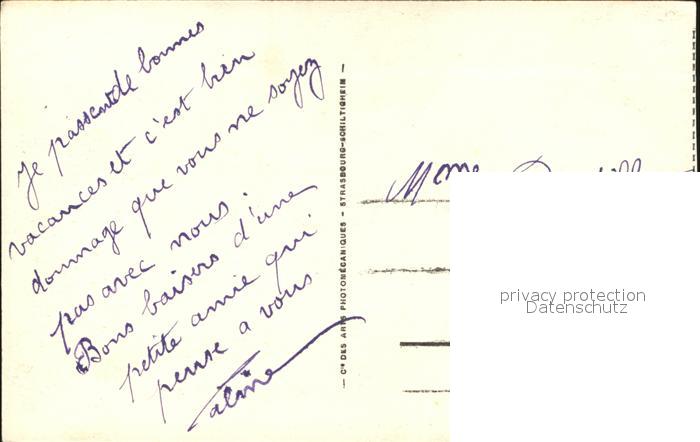 Je passe de bonnes
vacances et c'est bien
dommage que vous ne soyez
pas avec nous.
Bons baisers d'une
petite amie qui
pense a vous
Cie DES ARTS PHOTOMÉCANIQUES - STRASBOURG-SCHILTIGHEIM
Mme
privacy protection
Datenschutz